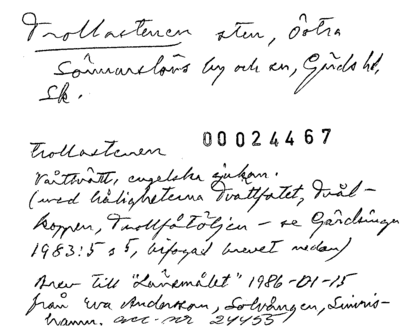 Trollastenen sten, Östra
Sönnarslövs by och sn, Gärds hd,
Sk.
00024467
Trollastenen
engelska sjukan.
(med håligheterna Tvättfatet, Tvål-
koppen, Trollfåtöljen – se Gärdsingen
1983:5 s 5, bifogad brevet nedan)
Brev till "Länsmålet" 1986-01-15
från Eva Andersson, Solvången, Simris-
hamn. acc. nr 24455